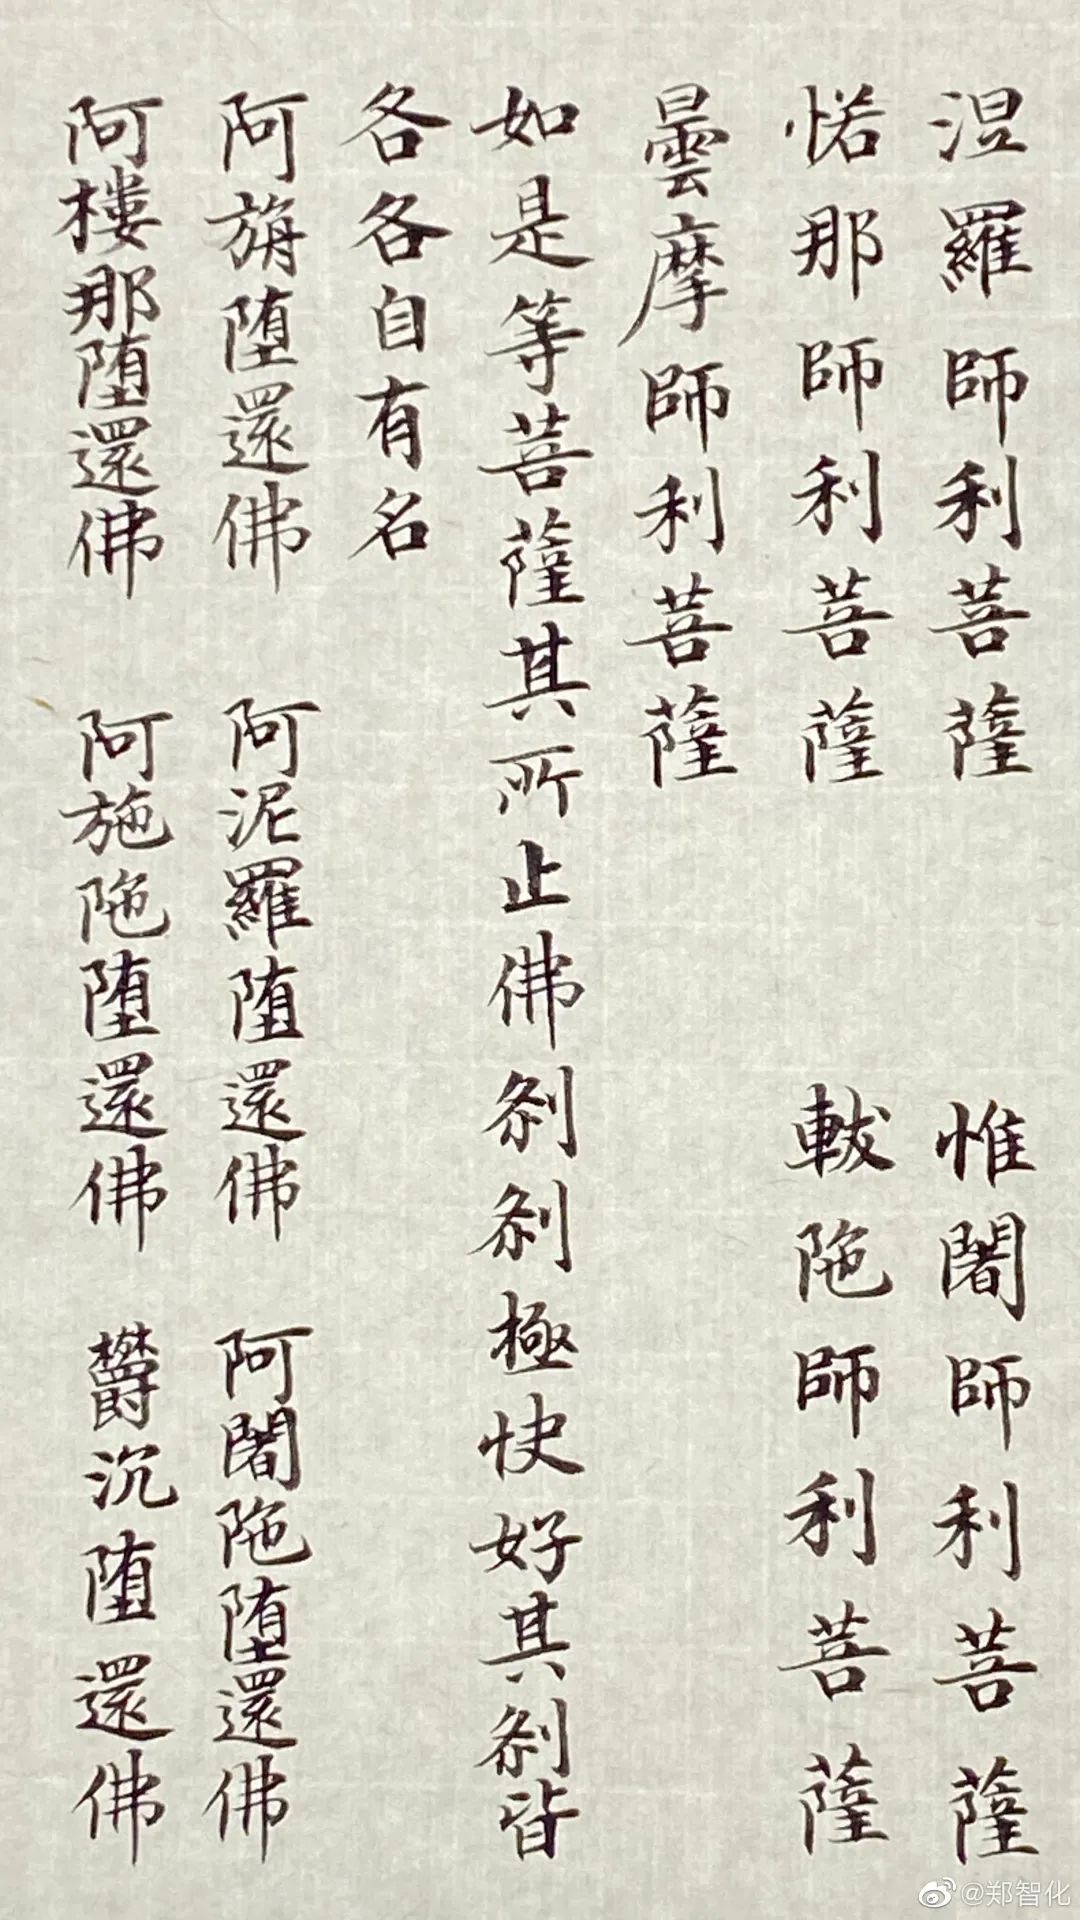 涅羅師利菩薩 惟闍師利菩薩
那師利菩薩 軷陁師利菩薩
曇摩師利菩薩
如是等菩薩其所止佛刹刹極快好其刹皆
各各自有名
阿旃堕還佛 阿泥羅堕還佛 阿闍陁堕還佛
阿樓那堕還佛 阿施陁堕還佛 欝沉堕還佛
@郑智化